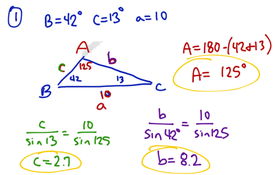 ① B=42° C=13° a=10
A
125
c
b
42
13
B
C
10
a
A=180-(42+13)
A= 125°
c/sin 13 = 10/sin 125
c=2.7
b/sin 42° = 10/sin 125
b=8.2